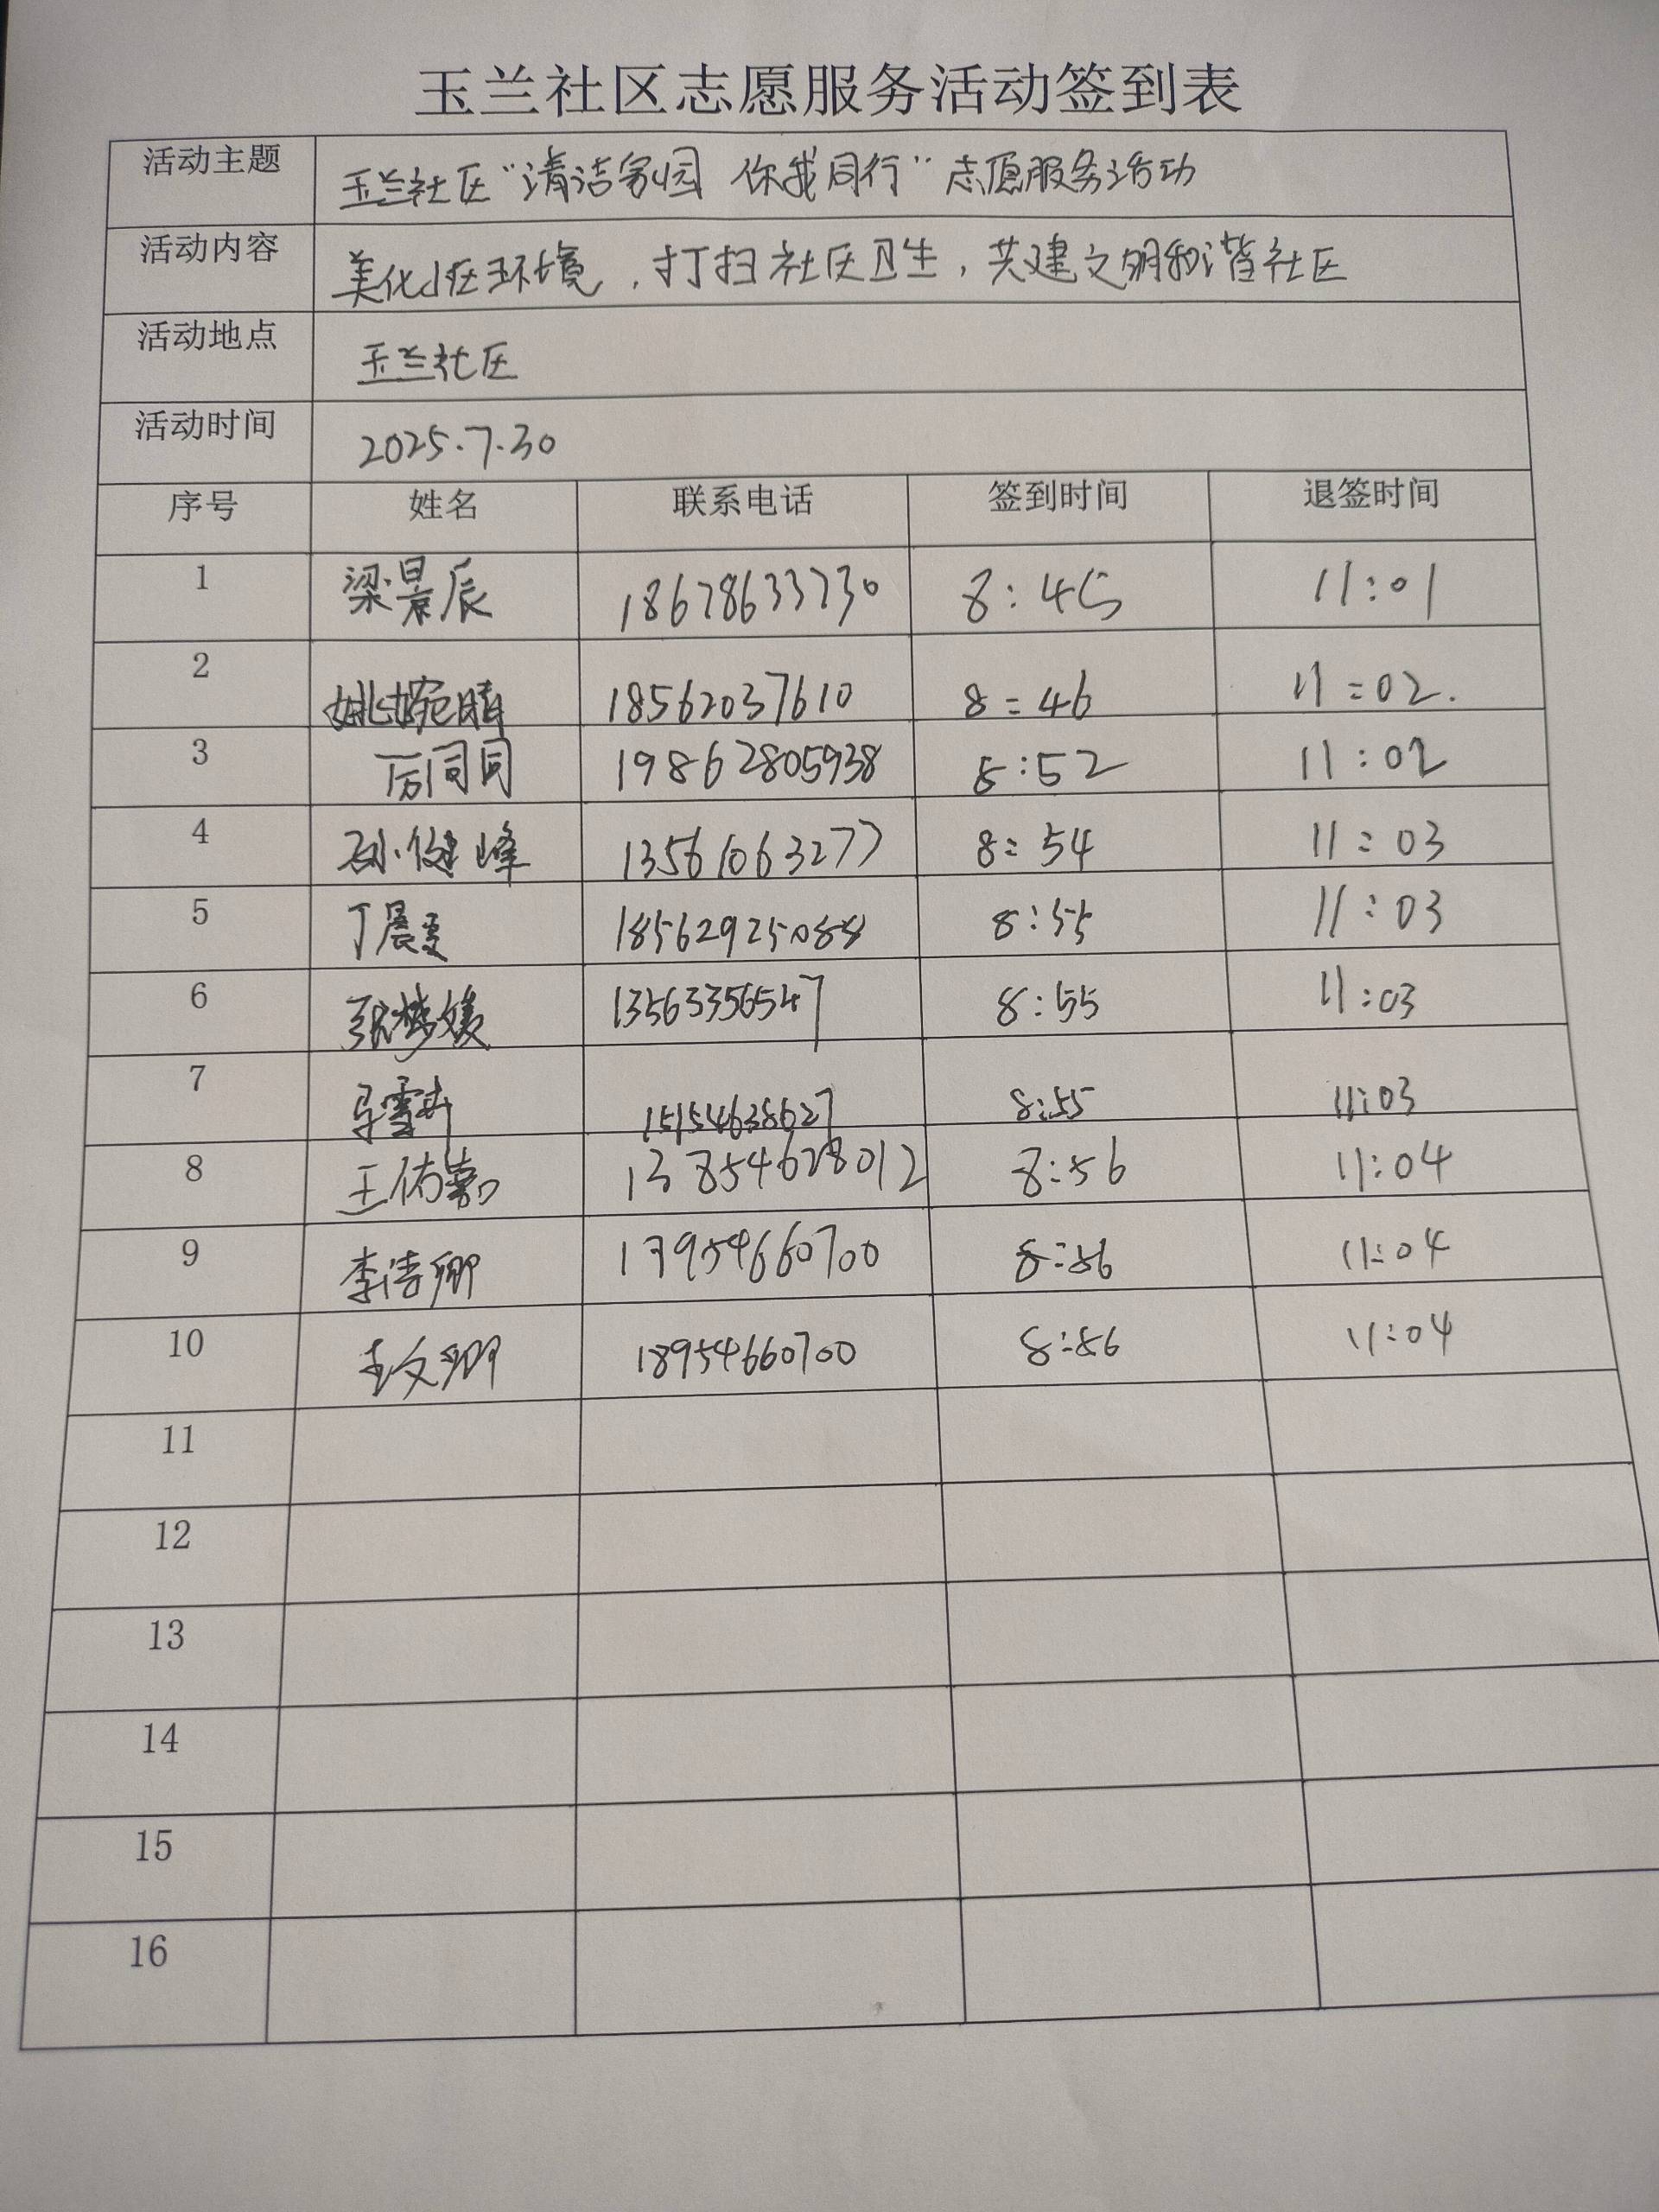 玉兰社区志愿服务活动签到表
活动主题 玉兰社区“清洁家园 你我同行”志愿服务活动
活动内容 美化小区环境，打扫社区卫生，共建文明和谐社区
活动地点 玉兰社区
活动时间 2025.7.30
序号 姓名 联系电话 签到时间 退签时间
1 梁景辰 18678633730 8:45 11:01
2 姚婉晴 18562037610 8:46 11:02.
3 厉同同 19862805938 8:52 11:02
4 孙健峰 13561063277 8:54 11:03
5 丁晨 18562925088 8:55 11:03
6 张梦媛 13563356547 8:55 11:03
7 15154638627 8:55 11:03
8 王佑嘉 13854628012 8:56 11:04
9 李清卿 17954660700 8:56 11:04
10 王文卿 18954660700 8:56 11:04
11
12
13
14
15
16